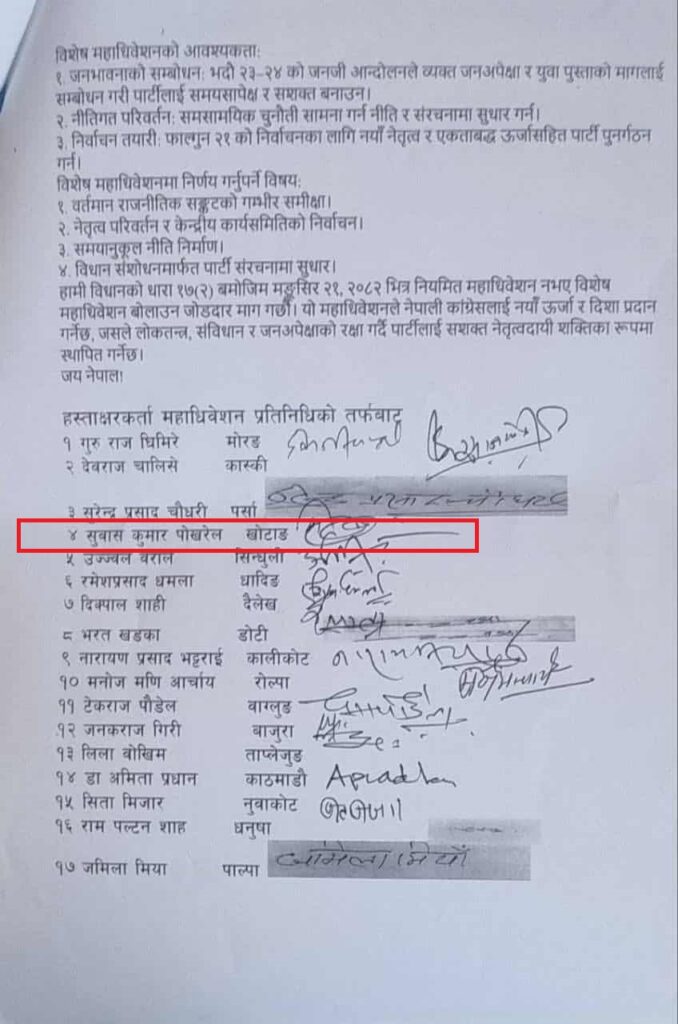 विशेष महाधिवेशनको आवश्यकता:
१. जनभावनाको सम्बोधन: भदौ २३-२४ को जनजी आन्दोलनले व्यक्त जनअपेक्षा र युवा पुस्ताको मागलाई
सम्बोधन गरी पार्टीलाई समयसापेक्ष र सशक्त बनाउन।
२. नीतिगत परिवर्तन: समसामयिक चुनौती सामना गर्न नीति र संरचनामा सुधार गर्न।
३. निर्वाचन तयारी: फाल्गुन २१ को निर्वाचनका लागि नयाँ नेतृत्व र एकताबद्ध ऊर्जासहित पार्टी पुनर्गठन
गर्न।
विशेष महाधिवेशनमा निर्णय गर्नुपर्ने विषय:
१. वर्तमान राजनीतिक सङ्कटको गम्भीर समीक्षा।
२. नेतृत्व परिवर्तन र केन्द्रीय कार्यसमितिको निर्वाचन।
३. समयानुकूल नीति निर्माण।
४. विधान संशोधनमार्फत पार्टी संरचनामा सुधार।
हामी विधानको धारा १७(२) बमोजिम मङ्सिर २१, २०८२ भित्र नियमित महाधिवेशन नभए विशेष
महाधिवेशन बोलाउन जोडदार माग गर्छौं। यो महाधिवेशनले नेपाली कांग्रेसलाई नयाँ ऊर्जा र दिशा प्रदान
गर्नेछ, जसले लोकतन्त्र, संविधान र जनअपेक्षाको रक्षा गर्दै पार्टीलाई सशक्त नेतृत्वदायी शक्तिका रूपमा
स्थापित गर्नेछ।
जय नेपाल!
हस्ताक्षरकर्ता महाधिवेशन प्रतिनिधिको तर्फबाट
१ गुरु राज घिमिरे मोरङ
२ देवराज चालिसे कास्की
३ सुरेन्द्र प्रसाद चौधरी पर्सा
४ सुबास कुमार पोखरेल खोटाङ
५ उज्ज्वल बराल सिन्धुली
६ रमेशप्रसाद धमला धादिङ
७ दिक्पाल शाही दैलेख
८ भरत खडका डोटी
९ नारायण प्रसाद भट्टराई कालीकोट
१० मनोज मणि आर्चाय रोल्पा
११ टेकराज पौडेल वाग्लुङ
१२ जनकराज गिरी बाजुरा
१३ लिला बोखिम ताप्लेजुङ
१४ डा अमिता प्रधान काठमाडौ Apradhan
१५ सिता मिजार नुवाकोट
१६ राम पल्टन शाह धनुषा
१७ जमिला मिया पाल्पा जमिला मियाँ